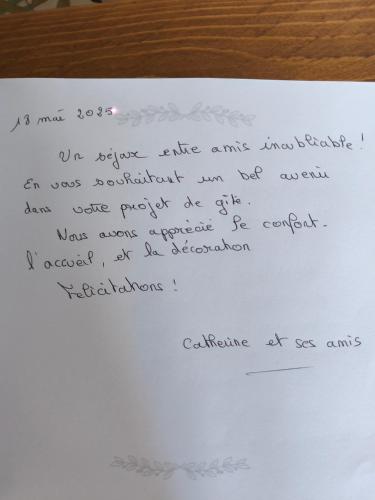 18 mai 2025
Un séjour entre amis inoubliable !
En vous souhaitant un bel avenir
dans votre projet de gîte.
Nous avons apprécié le confort.
l'accueil, et la décoration
Félicitations !
Catherine et ses amis